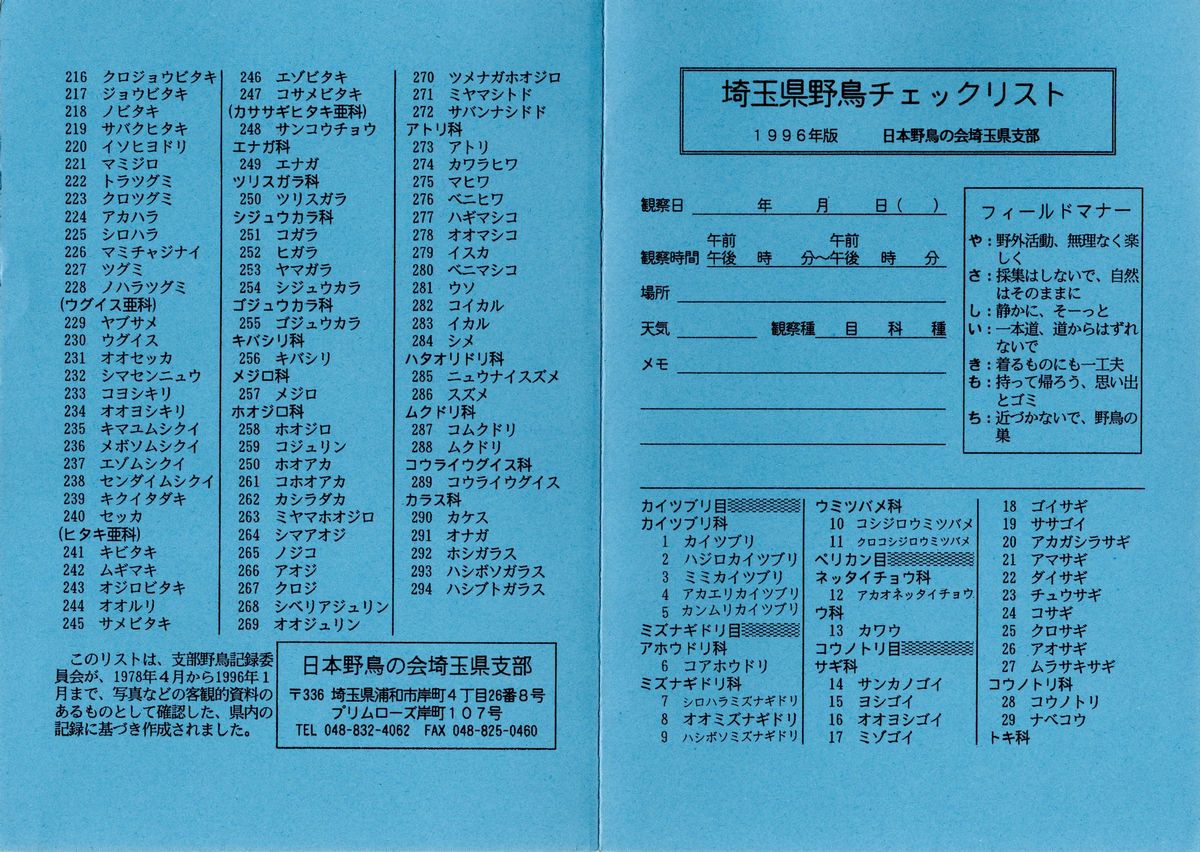 216 クロジョウビタキ
217 ジョウビタキ
218 ノビタキ
219 サバクヒタキ
220 イソヒヨドリ
221 マミジロ
222 トラツグミ
223 クロツグミ
224 アカハラ
225 シロハラ
226 マミチャジナイ
227 ツグミ
228 ノハラツグミ
(ウグイス亜科)
229 ヤブサメ
230 ウグイス
231 オオセッカ
232 シマセンニュウ
233 コヨシキリ
234 オオヨシキリ
235 キマユムシクイ
236 メボソムシクイ
237 エゾムシクイ
238 センダイムシクイ
239 キクイタダキ
240 セッカ
(ヒタキ亜科)
241 キビタキ
242 ムギマキ
243 オジロビタキ
244 オオルリ
245 サメビタキ
246 エゾビタキ
247 コサメビタキ
(カササギヒタキ亜科)
248 サンコウチョウ
エナガ科
249 エナガ
ツリスガラ科
250 ツリスガラ
シジュウカラ科
251 コガラ
252 ヒガラ
253 ヤマガラ
254 シジュウカラ
ゴジュウカラ科
255 ゴジュウカラ
キバシリ科
256 キバシリ
メジロ科
257 メジロ
ホオジロ科
258 ホオジロ
259 コジュリン
250 ホオアカ
261 コホオアカ
262 カシラダカ
263 ミヤマホオジロ
264 シマアオジ
265 ノジコ
266 アオジ
267 クロジ
268 シベリアジュリン
269 オオジュリン
270 ツメナガホオジロ
271 ミヤマシトド
272 サバンナシドド
アトリ科
273 アトリ
274 カワラヒワ
275 マヒワ
276 ベニヒワ
277 ハギマシコ
278 オオマシコ
279 イスカ
280 ベニマシコ
281 ウソ
282 コイカル
283 イカル
284 シメ
ハタオリドリ科
285 ニュウナイスズメ
286 スズメ
ムクドリ科
287 コムクドリ
288 ムクドリ
コウライウグイス科
289 コウライウグイス
カラス科
290 カケス
291 オナガ
292 ホシガラス
293 ハシボソガラス
294 ハシブトガラス
このリストは、支部野鳥記録委
員会が、1978年4月から1996年1
月まで、写真などの客観的資料の
あるものとして確認した、県内の
記録に基づき作成されました。
日本野鳥の会埼玉県支部
〒336 埼玉県浦和市岸町4丁目26番8号
プリムローズ岸町107号
TEL 048-832-4062 FAX 048-825-0460
埼玉県野鳥チェックリスト
1996年版 日本野鳥の会埼玉県支部
観察日 年 月 日( )
午前 午前
観察時間 午後 時 分~午後 時 分
場所
天気 観察種 目 科 種
メモ
フィールドマナー
や:野外活動、無理なく楽
しく
さ:採集はしないで、自然
はそのままに
し:静かに、そーっと
い:一本道、道からはずれ
ないで
き:着るものにも一工夫
も:持って帰ろう、思い出
とゴミ
ち:近づかないで、野鳥の
巣
カイツブリ目
カイツブリ科
1 カイツブリ
2 ハジロカイツブリ
3 ミミカイツブリ
4 アカエリカイツブリ
5 カンムリカイツブリ
ミズナギドリ目
アホウドリ科
6 コアホウドリ
ミズナギドリ科
7 シロハラミズナギドリ
8 オオミズナギドリ
9 ハシボソミズナギドリ
ウミツバメ科
10 コシジロウミツバメ
11 クロコシジロウミツバメ
ペリカン目
ネッタイチョウ科
12 アカオネッタイチョウ
ウ科
13 カワウ
コウノトリ目
サギ科
14 サンカノゴイ
15 ヨシゴイ
16 オオヨシゴイ
17 ミゾゴイ
18 ゴイサギ
19 ササゴイ
20 アカガシラサギ
21 アマサギ
22 ダイサギ
23 チュウサギ
24 コサギ
25 クロサギ
26 アオサギ
27 ムラサキサギ
コウノトリ科
28 コウノトリ
29 ナベコウ
トキ科